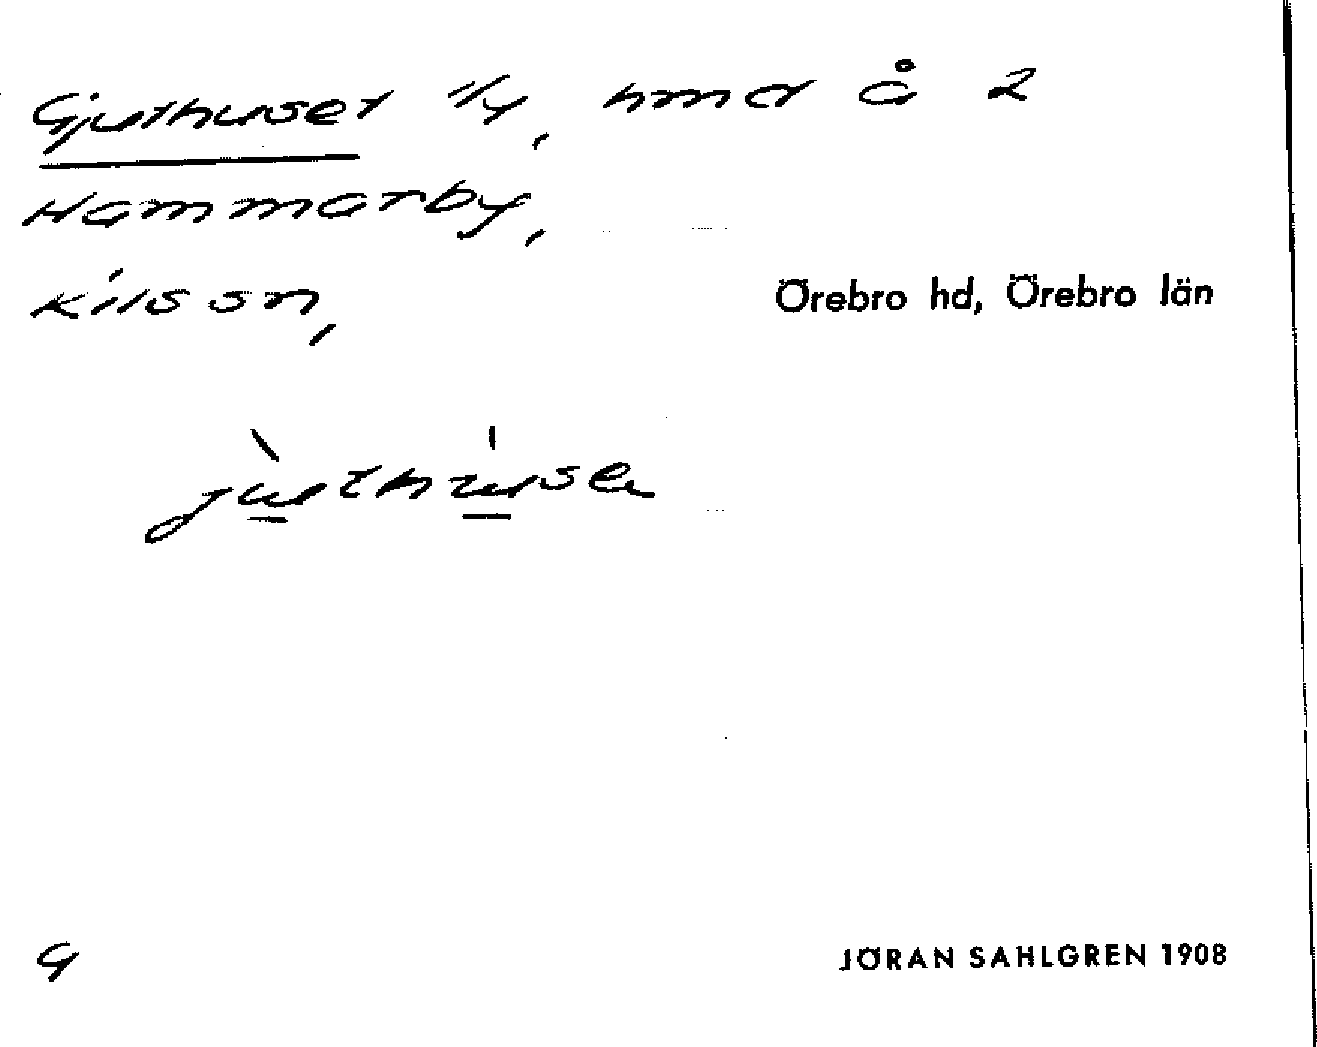 Gjuthuset 1/4, hmd å 2
Hammarby,
Kils sn,
Örebro hd, Örebro län
jùthúse
G
JÖRAN SAHLGREN 1908